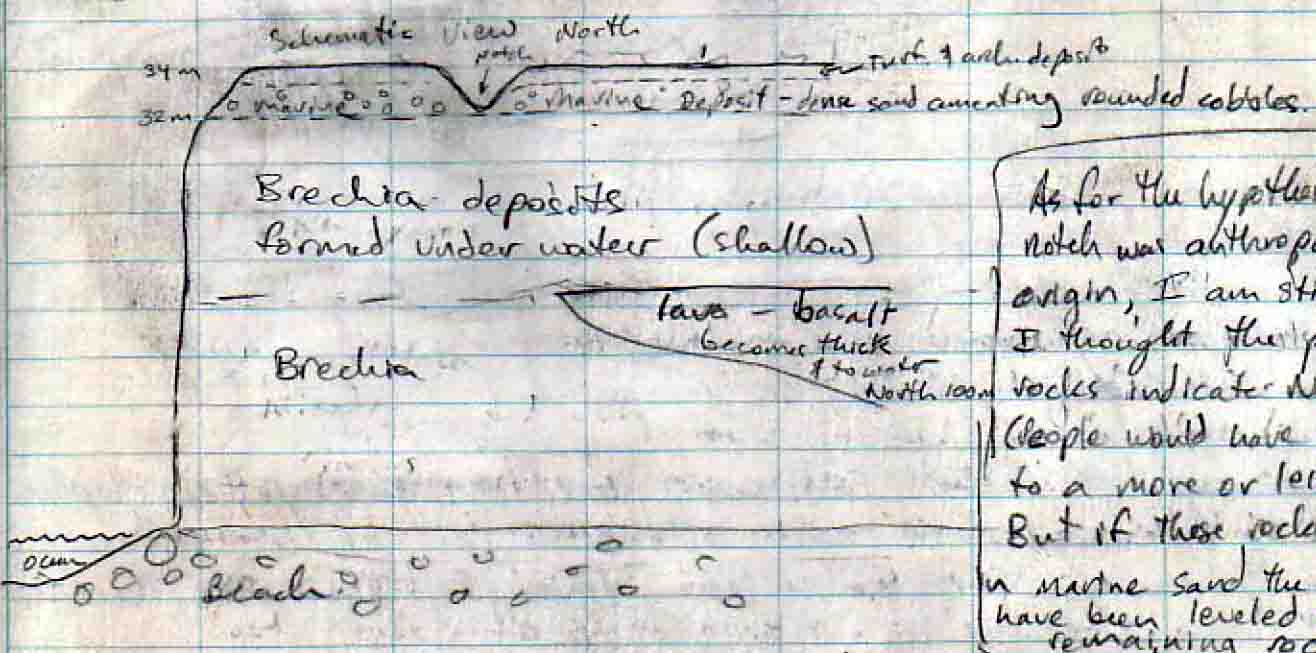 Schematic View North
Notch
34 m
Turf & arch. deposit
32 m
marine
Marine Deposit - dense sand cementing rounded cobbles.
Brechia deposits
formed under water (shallow)
lava - basalt
becomes thick
& to water
North 100m
Brechia
Ocean
Beach
As for the hypothe
notch was anthrop
origin, I am sti
I thought the p
rocks indicate N
(People would have
to a more or les
But if these rock
in marine sand the
have been leveled
remaining roc